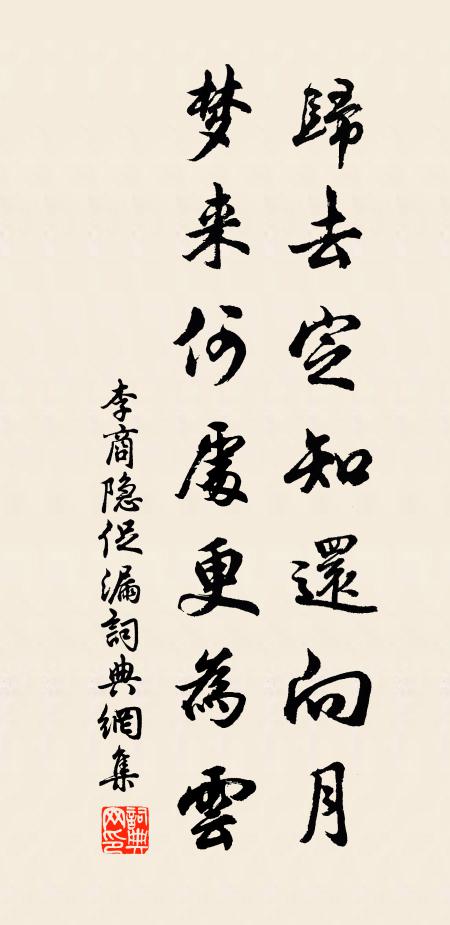 歸去定知還向月
梦来何處更為雲
李商隐促漏詞典網集
詞典網印